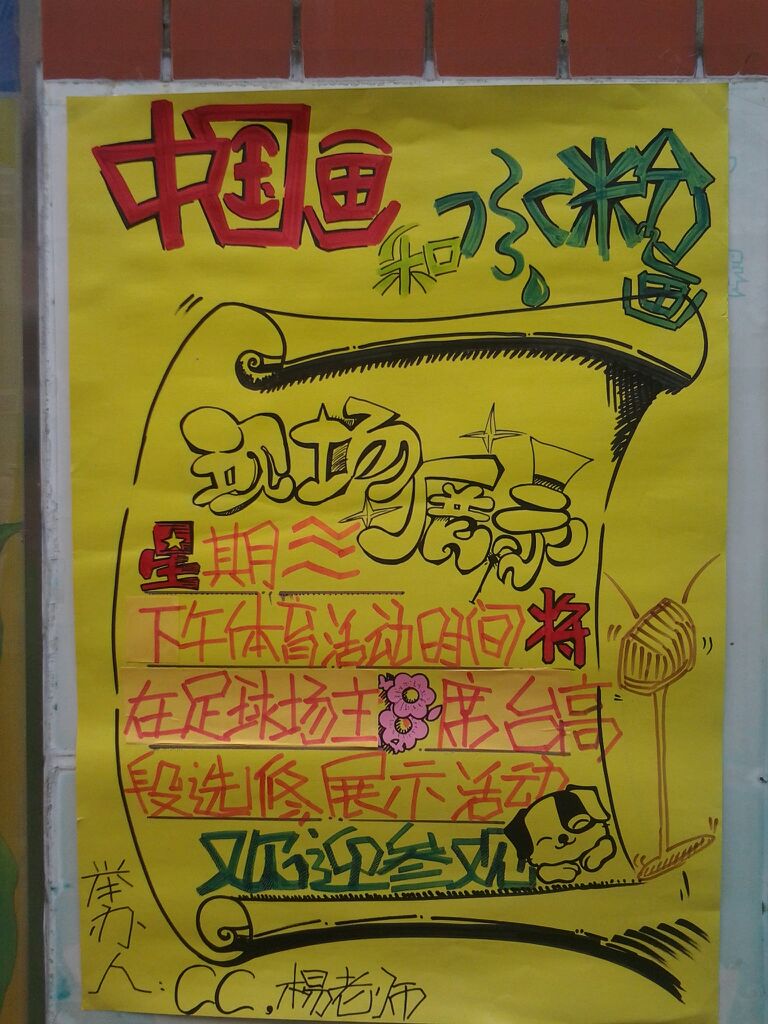 中国画和水粉画
现场展示
星期三
下午体育活动时间将
在足球场主席台高
段选修展示活动
欢迎参观
举办人:CC,楊老师